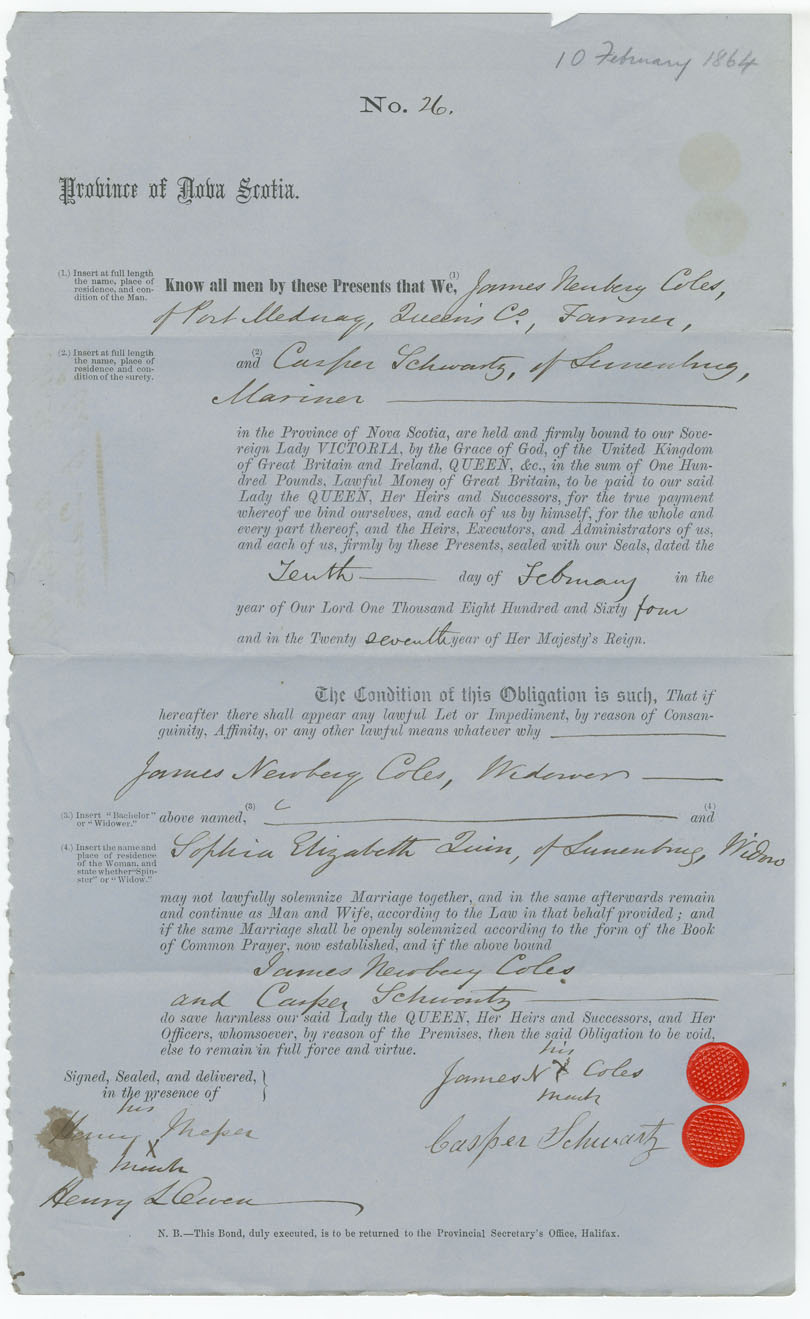 10 February 1864
No. 26.
Province of Nova Scotia.
(1.) Insert at full length
the name, place of
residence, and con-
dition of the Man.
Know all men by these Presents that We, (1) James Newberg Coles,
of Port Medway, Queen's Co., Farmer,
(2.) Insert at full length
the name, place of
residence and con-
dition of the surety.
and (2) Casper Schwartz, of Lunenburg,
Mariner
in the Province of Nova Scotia, are held and firmly bound to our Sove-
reign Lady VICTORIA, by the Grace of God, of the United Kingdom
of Great Britain and Ireland, QUEEN, &c., in the sum of One Hun-
dred Pounds, Lawful Money of Great Britain, to be paid to our said
Lady the QUEEN, Her Heirs and Successors, for the true payment
whereof we bind ourselves, and each of us by himself, for the whole and
every part thereof, and the Heirs, Executors, and Administrators of us,
and each of us, firmly by these Presents, sealed with our Seals, dated the
Tenth day of February in the
year of Our Lord One Thousand Eight Hundred and Sixty four
and in the Twenty seventh year of Her Majesty's Reign.
The Condition of this Obligation is such, That if
hereafter there shall appear any lawful Let or Impediment, by reason of Consan-
guinity, Affinity, or any other lawful means whatever why
James Newberg Coles, Widower
(3.) Insert "Bachelor"
or "Widower."
above named, (3) and (4)
(4.) Insert the name and
place of residence
of the Woman, and
state whether "Spin-
ster" or "Widow."
Sophia Elizabeth Quin, of Lunenburg, Widow
may not lawfully solemnize Marriage together, and in the same afterwards remain
and continue as Man and Wife, according to the Law in that behalf provided; and
if the same Marriage shall be openly solemnized according to the form of the Book
of Common Prayer, now established, and if the above bound
James Newberg Coles
and Casper Schwartz
do save harmless our said Lady the QUEEN, Her Heirs and Successors, and Her
Officers, whomsoever, by reason of the Premises, then the said Obligation to be void,
else to remain in full force and virtue.
Signed, Sealed, and delivered,
in the presence of
his
James N X Coles
mark
Casper Schwartz
his
Henry
X
mark
Henry S Owen
N. B.—This Bond, duly executed, is to be returned to the Provincial Secretary's Office, Halifax.